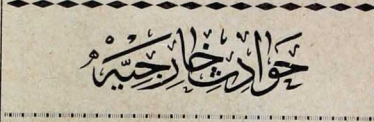 حوادث خارجيه